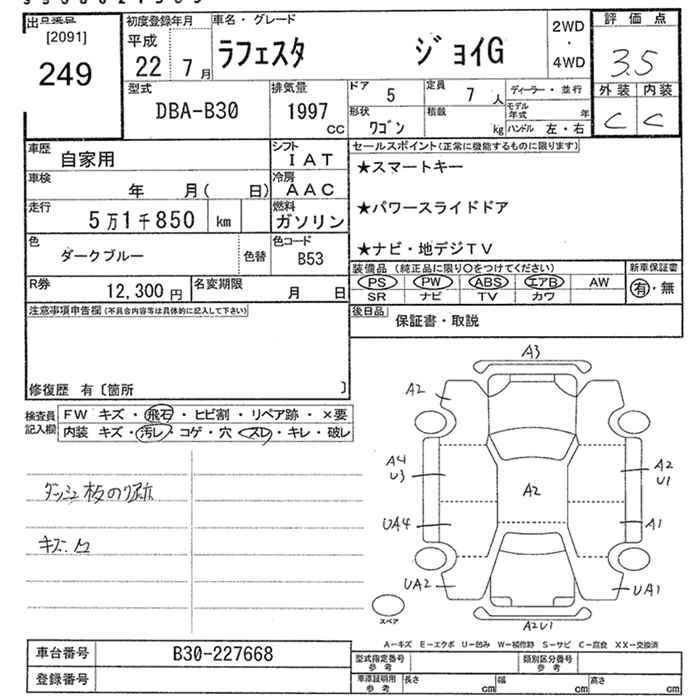 出品番号
[2091]
249
初度登録年月
平成
22 7 月
車名・グレード
ラフェスタ ジョイG
2WD
・
4WD
評価点
3.5
外装 内装
C C
型式
DBA-B30
排気量
1997
CC
ドア 5
定員 7 人
ディーラー・並行
形状 ワゴン
積載 kg
モデル年式 年
ハンドル 左・右
車歴 自家用
シフト IAT
車検 年 月( 日)
冷房 AAC
走行 5万1千850 km
燃料 ガソリン
色 ダークブルー 色替
色コード B53
R券 12,300 円
名変期限 月 日
セールスポイント(正常に機能するものに限ります)
★スマートキー
★パワースライドドア
★ナビ・地デジTV
装備品 (純正品に限り○をつけてください)
PS PW ABS エアB AW
SR ナビ TV カワ
新車保証書
有・無
後日品 保証書・取説
注意事項申告欄(不具合内容等は具体的に記入して下さい)
修復歴 有〔箇所 〕
検査員記入欄
FW キズ・飛石・ヒビ割・リペア跡・×要
内装 キズ・汚レ・コゲ・穴・スレ・キレ・破レ
ダッシュ板のり跡
キズ・凹
A3
A2
A4
U3
A2
A2
U1
UA4
A1
UA2
UA1
A2U1
スペア
A－キズ E－エクボ U－凹み W－補修跡 S－サビ C－腐食 XX－交換済
車台番号 B30-227668
登録番号
型式指定番号
参考
類別区分番号
参考
車庫証明用
参考
長さ cm 幅 cm 高さ cm